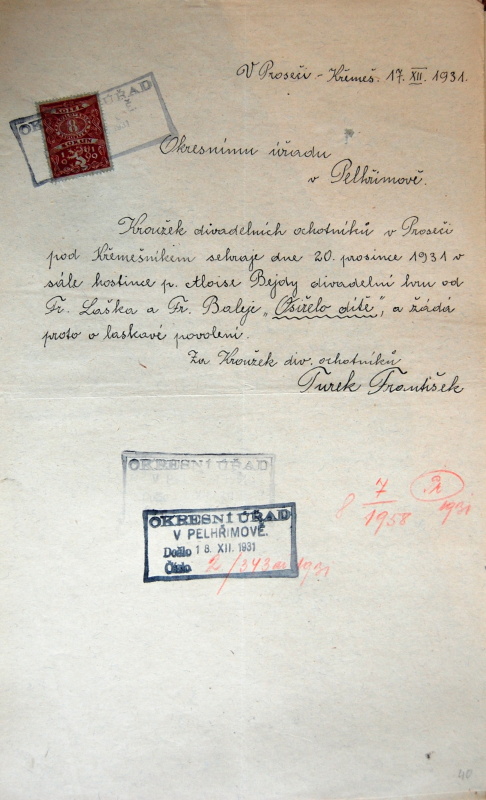 V Proseči - Křemeš. 17. XII. 1931.
OKRESNÍ ÚŘAD
KOLEK
8
KORUN
Okresnímu úřadu
v Pelhřimově.
Kroužek divadelních ochotníků v Proseči
pod Křemešníkem sehraje dne 20. prosince 1931 v
sále hostince p. Aloise Bejdy divadelní hru od
Fr. Laška a Fr. Baleje „Osiřelo dítě", a žádá
proto o laskavé povolení.
Za Kroužek div. ochotníků
Turek František
OKRESNÍ ÚŘAD
OKRESNÍ ÚŘAD
V PELHŘIMOVĚ.
Došlo 18. XII. 1931
Číslo
1931
8 7
1958
1931
40